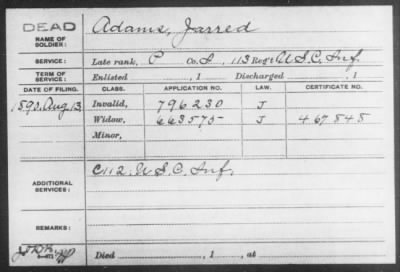 DEAD
NAME OF SOLDIER: Adams, Jarred
SERVICE: Late rank, P Co. I, 113 Reg't U.S.C. Inf.
TERM OF SERVICE: Enlisted , 1 Discharged , 1
DATE OF FILING. CLASS. APPLICATION NO. LAW. CERTIFICATE NO.
1890. Aug. 13. Invalid, 796230 J
Widow, 663575 J 467848
Minor,
ADDITIONAL SERVICES: C 112 U.S.C. Inf.
REMARKS:
Died , 1 , at